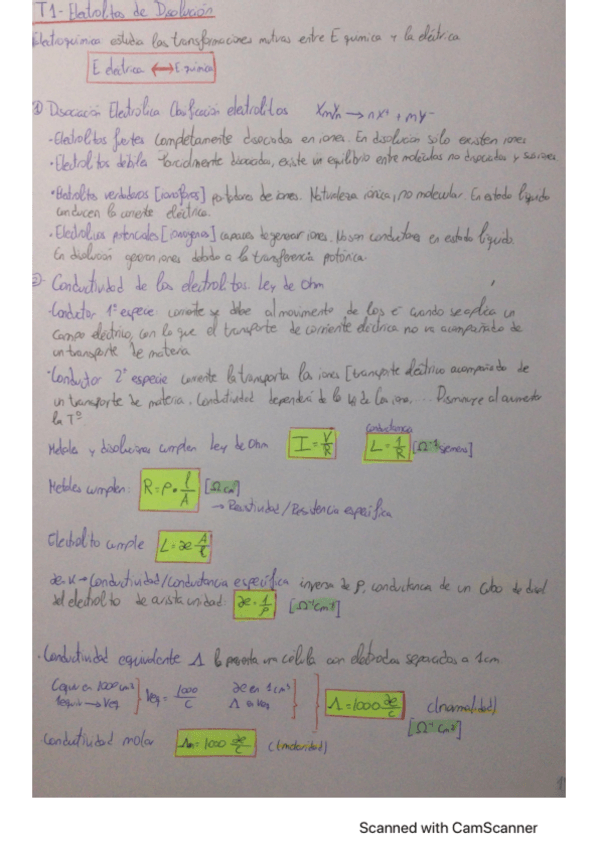 T1- Electrolitos de Disolución
Electroquímica estudia las transformaciones mutuas entre E química y la eléctrica.
E eléctrica ↔ E química
① Disociación Electrolítica Clasificación electrolitos XmYn → nX⁺ + mY⁻
- Electrolitos fuertes completamente disociados en iones. En disolución solo existen iones
• Electrolitos débiles Parcialmente disociados, existe un equilibrio entre moléculas no disociadas y sus iones.
• Electrolitos verdaderos [ionóforos] portadores de iones. Naturaleza iónica, no molecular. En estado líquido
conducen la corriente eléctrica.
• Electrolitos potenciales [ionógenos] capaces de generar iones. No son conductores en estado líquido.
En disolución generan iones debido a la transferencia protónica.
② Conductividad de los electrolitos. Ley de Ohm
- Conductor 1ª especie: corriente se debe al movimiento de los e⁻ cuando se aplica un
campo eléctrico, con lo que el transporte de corriente eléctrica no va acompañado de
un transporte de materia
- Conductor 2ª especie corriente la transporta los iones [transporte eléctrico acompañado de
un transporte de materia. Conductividad dependerá de la de los iones.... Disminuye al aumentar
la Tª
Metales y disoluciones cumplen Ley de Ohm I = V/R
Conductancia L = 1/R [Ω⁻¹ siemens]
Metales cumplen: R = ρ · l/A [Ω cm]
→ Resistividad/Resistencia específica
Electrolito cumple L = æ A/l
æ, K → Conductividad/conductancia específica inversa de ρ, conductancia de un cubo de
del electrolito de arista unidad: æ = 1/ρ [Ω⁻¹cm⁻¹]
• Conductividad equivalente Λ la presenta una célula con electrodos separados a 1cm.
C equiv en 1000 cm³
1 equiv → Veq } Veq = 1000/C æ en 1 cm³
Λ en Veq } Λ = 1000 æ/C C (normalidad)
[Ω⁻¹ cm²]
Conductividad molar Λm = 1000 æ/C C (molaridad)
Scanned with CamScanner